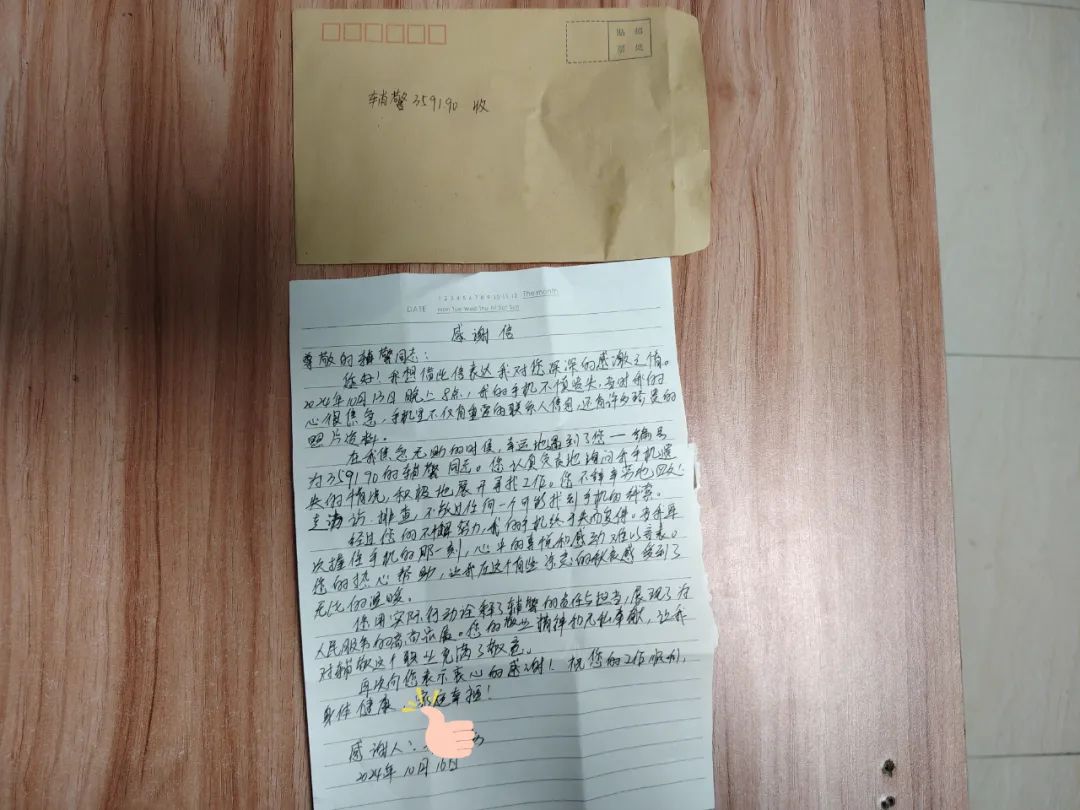 贴 邮
票 处
辅警359190 收
1 2 3 4 5 6 7 8 9 10 11 12 The month
DATE Mon Tue Wed Thu Fri Sat Sun
感谢信
尊敬的辅警同志：
您好！我想借此信表达我对您深深的感激之情。
2024年10月13日晚上8点，我的手机不慎丢失，当时我的
心很焦急，手机里不仅有重要的联系人信息，还有许多珍贵的
照片资料。
在我焦急无助的时候，幸运地遇到了您一编号
为359190的辅警同志。您认真负责地询问我手机遗
失的情况，积极地展开寻找工作。您不辞辛劳地四处
走访、排查，不放过任何一个可能找到手机的线索。
经过您的不懈努力，我的手机终于失而复得。当我再
次握住手机的那一刻，心中的喜悦和感动难以言表。
您的热心帮助，让我在这个有些凉意的秋夜感受到了
无比的温暖。
您用实际行动诠释了辅警的责任与担当，展现了为
人民服务的高尚品质。您的敬业精神和无私奉献，让我
对辅警这个职业充满了敬意。
再次向您表示衷心的感谢！祝您的工作顺利，
身体健康，家庭幸福！
感谢人：
2024年10月16日